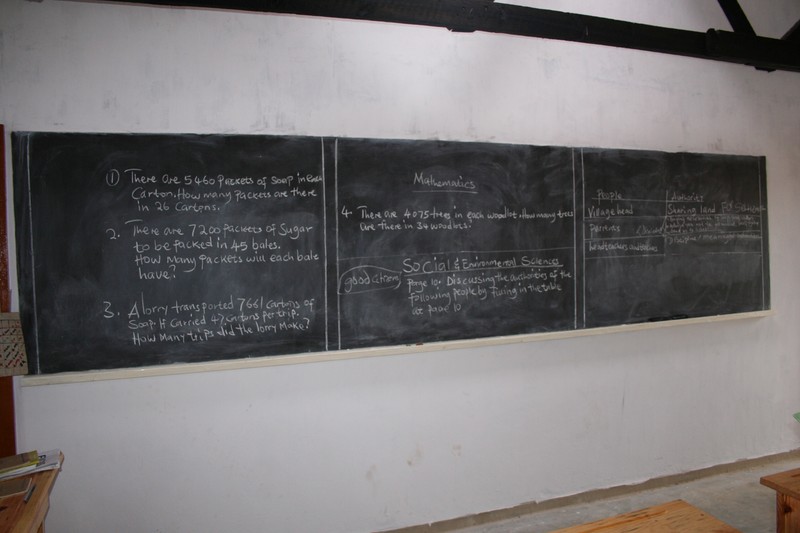 ① There are 5460 Packets of Soap in Each
Carton. How many Packets are there
in 26 Cartons.
2. There are 7200 Packets of Sugar
to be Packed in 45 bales.
How Many Packets will each bale
have?
3. A lorry transported 7661 Cartons of
Soap. It Carried 47 Cartons per trip.
How Many trips did the lorry Make?
Mathematics
4. There are 4075 trees in each woodlot. How many trees
are there in 34 woodlots.
Social & Environmental Sciences
good citizen
Page 10. Discussing the authorities of the
following people by filling in the table
at page 10
People
Authorities
Village head
Sharing land
Parents